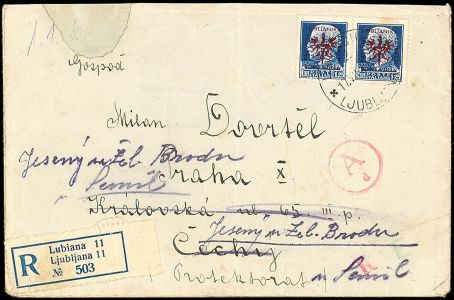 Gospod
Milan Dovrtěl
Jesený u Žel. Brodu
Praha X
Semil
Královská ul. 65 III p.
Jesený u Žel. Brodu
Čechy
Protektorat u Semil
R
Lubiana 11
Ljubljana 11
№ 503
LJUBL
A